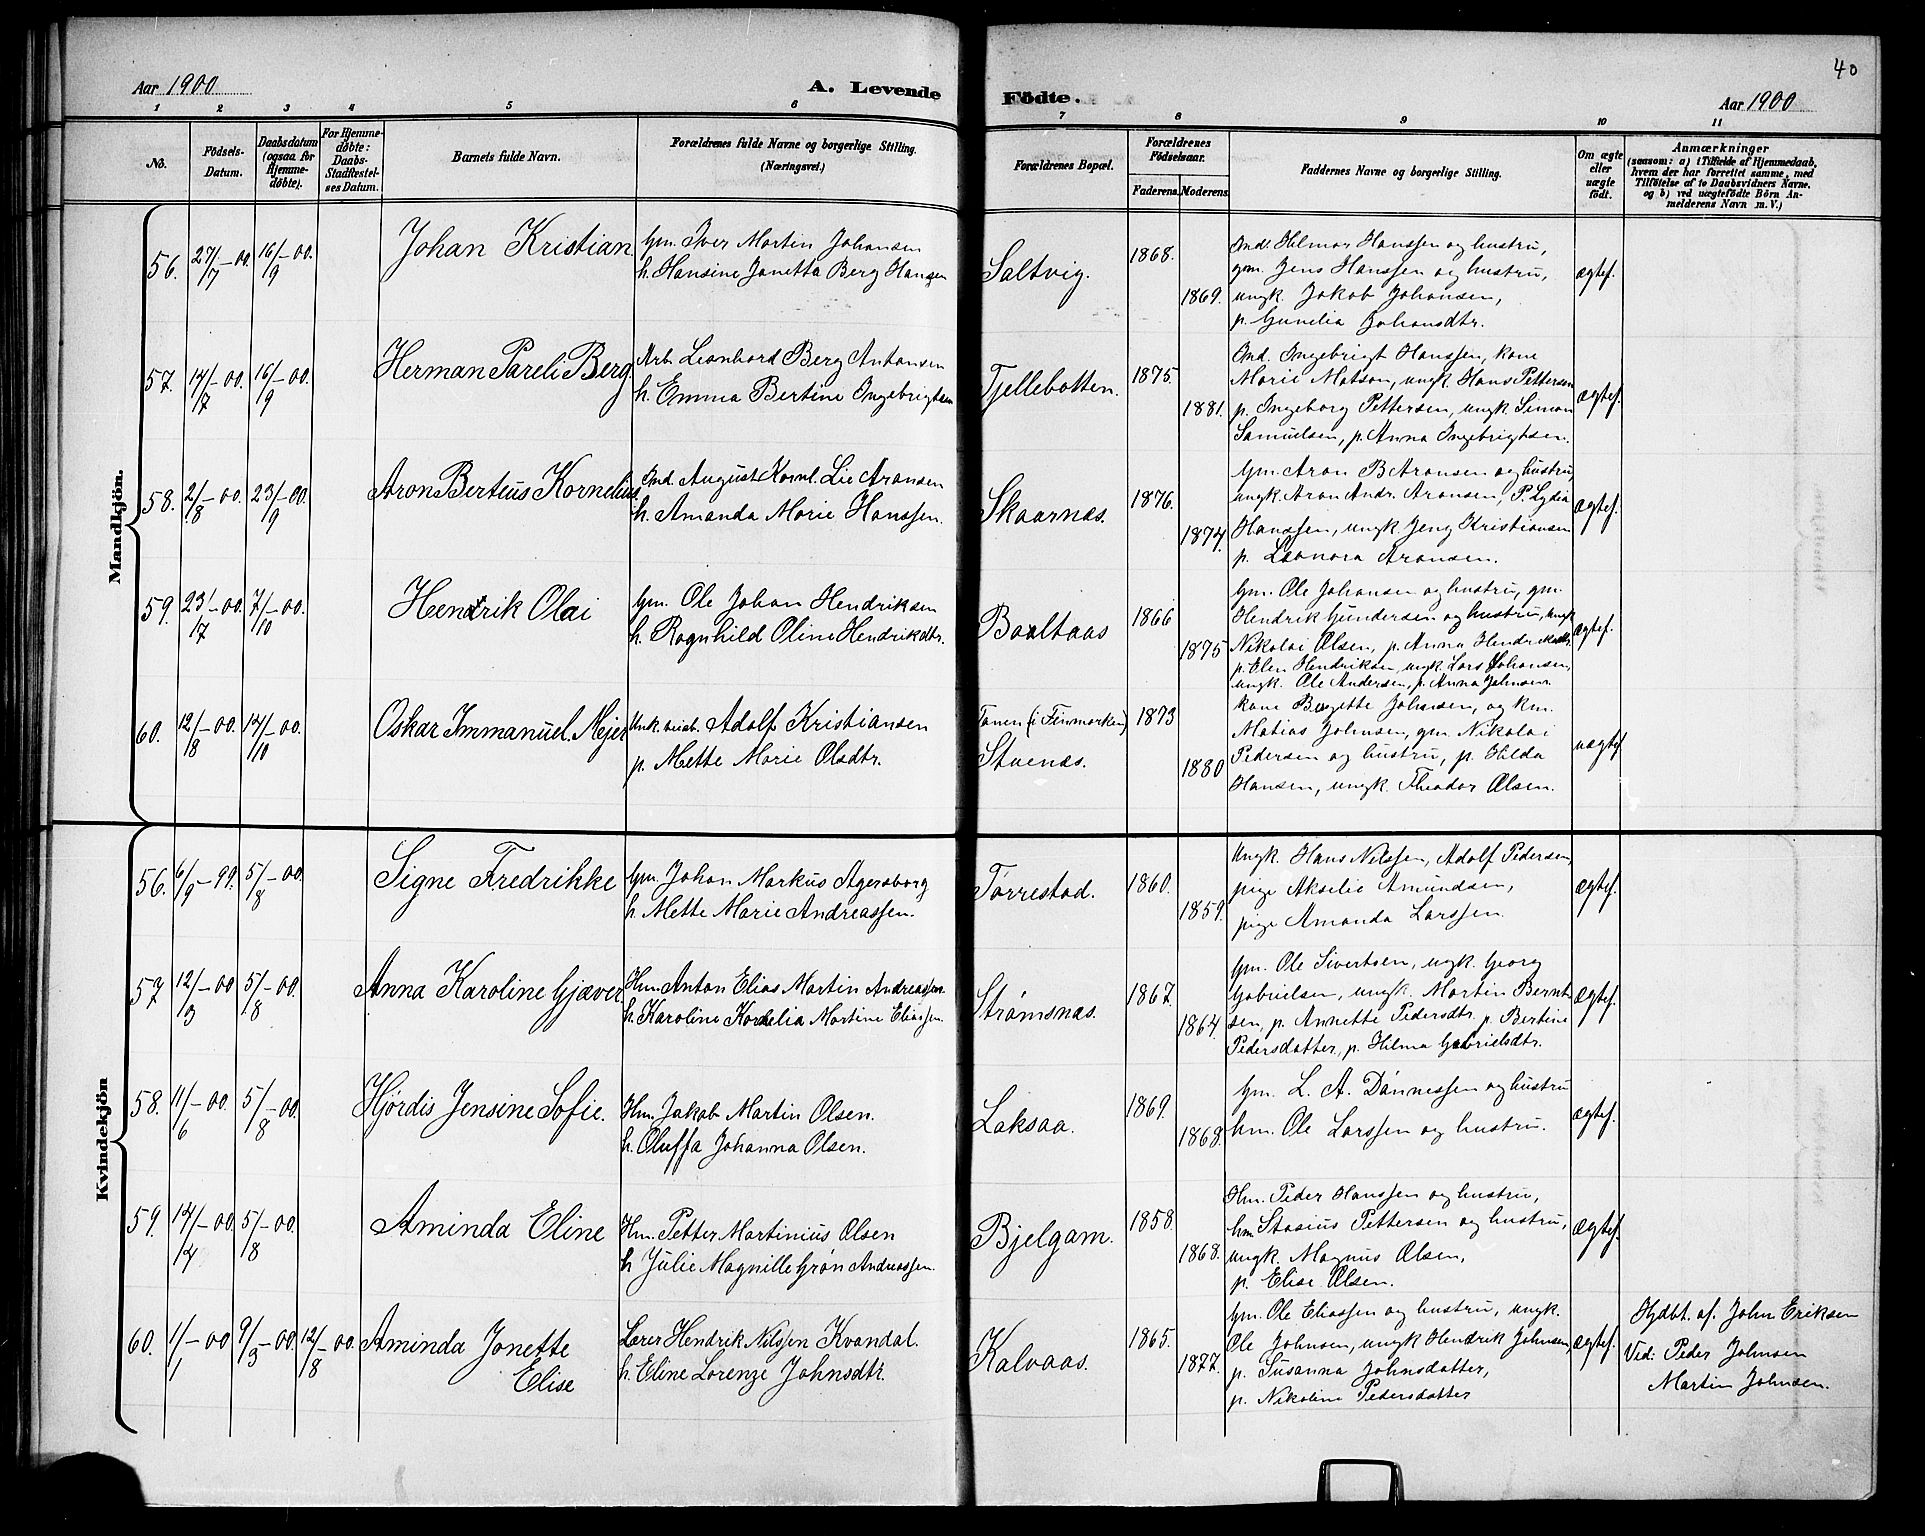 40
Aar 1900
A. Levende
Födte.
Aar 1900
1 2 3 4 5 6 7 8 9 10 11
No.
Födsels-
Datum.
Daabsdatum
(ogsaa for
Hjemme-
døbte).
For Hjemme-
døbte:
Daabs-
Stadfæstel-
ses Datum.
Barnets fulde Navn.
Forældrenes fulde Navne og borgerlige Stilling.
(Næringsvei.)
Forældrenes Bopæl.
Forældrenes
Födselsaar.
Faderens. Moderens.
Faddernes Navne og borgerlige Stilling.
Om ægte
eller
uægte
födt.
Anmærkninger
(saasom: a) i Tilfælde af Hjemmedaab,
hvem der har forrettet samme, med
Tilföielse af to Daabsvidners Navne,
og b) ved uægtefödte Börn An-
melderens Navn m. V.)
Mandkjön.
56. 27/7-00. 16/9-00. Johan Kristian
Gm. Iver Martin Johansen
h. Hansine Janetta Berg Hansen
Saltvig. 1868. 1869.
Ind. Hilmar Hanssen og hustru,
gm. Jens Hanssen og hustru,
ungk. Jakob Johansen,
p. Gunelia Johansdtr.
ægtef.
57. 14/7-00. 16/9-00. Herman Pareli Berg
Arb. Leonhard Berg Antonsen
h. Emma Bertine Ingebrigtsen
Tjellebotten. 1875. 1881.
Ind. Ingebrigt Hanssen, kone
Marie Matson, ungk. Hans Pettersen
p. Ingeborg Pettersen, ungk. Simon
Samuelsen, p. Anna Ingebrigtsen.
ægtef.
58. 2/8-00. 23/9-00. Aron Berteus Kornelius
Ind. August Kornl. Lie Aronsen
h. Amanda Marie Hanssen.
Skaarnæs. 1876. 1874.
Gm. Aron B Aronsen og hustru,
ungk. Aron Andr. Aronsen, P. Lydia
Hanssen, ungk. Jens Kristiansen
p. Leonora Aronsen.
ægtef.
59. 23/7-00. 7/10-00. Hendrik Olai
Gm. Ole Johan Hendriksen
h. Ragnhild Oline Hendriksdtr.
Baaltaas 1866 1875
Gm. Ole Johansen og hustru, gm.
Hendrik Gundersen og hustru, ungk.
Nikolai Olsen, p. Anna Hendriksdtr.
p. Elen Hendriksen, ungk. Lars Johansen,
ungk. Ole Andersen, p. Anna Johnsen.
ægtef.
60. 12/8-00. 14/10-00. Oskar Immanuel Mejer
Adolf Kristiansen
p. Mette Marie Olsdtr.
Tanen (i Finmarken)
Stuenæs. 1873 1880
kone Johnsen, og km.
Matias Johnsen, gm. Nikolai
Pedersen og hustru, p. Hilda
Hansen, ungk. Theodor Olsen.
uægtef
Kvindekjön
56. 6/9-99. 5/8-00. Signe Fredrikke
Gm. Johan Markus Agersborg
h. Mette Marie Andreassen.
Tørrestad. 1860. 1859.
Ungk. Hans Nilssen, Adolf Pedersen,
pige Akselie Amundsen,
pige Amanda Larssen.
ægtef.
57 12/3-00 5/8-00. Anna Karoline Gjæver
Hm. Anton Elias Martin Andreassen
h. Karoline Kornelia Martine Eliassen.
Strømsnæs. 1867. 1864.
Gm. Ole Sivertsen, ungk. Georg
Gabrielsen, ungk. Martin Bernt-
sen, p. Annette Pedersdtr. p. Bertine
Pedersdatter, p. Hilma Gabrielsdtr.
ægtef.
58. 11/6-00. 5/8-00. Hjørdis Jensine Sofie.
Hm. Jakob Martin Olsen.
h. Oluffa Johanna Olsen.
Laksaa. 1869. 1868.
Gm. L. A. Dønnessen og hustru
hm. Ole Larssen og hustru.
ægtef.
59. 14/4-00. 5/8-00. Aminda Eline
Hm. Petter Martinius Olsen
h Julie Magnille Grøn Andreassen.
Bjelgam. 1858. 1868.
Hm. Peder Hanssen og hustru,
hm. Stasius Pettersen og hustru,
ungk. Magnus Olsen,
p. Elise Olsen.
ægtef.
60. 1/1-00 9/3-00. 12/8-00. Aminda Jonette
Elise
Lærer Hendrik Nilssen Kvandal.
h. Eline Lorenze Johnsdtr.
Kalvaas. 1865. 1877.
Gm. Ole Eliassen og hustru, ungk.
Ole Johnsen, ungk. Hendrik Johnsen,
p. Susanna Johnsdatter,
p. Nikoline Pedersdatter
ægtef.
Hjdbt. af. John Eriksen
Vid: Peder Johnsen
Martin Johnsen.